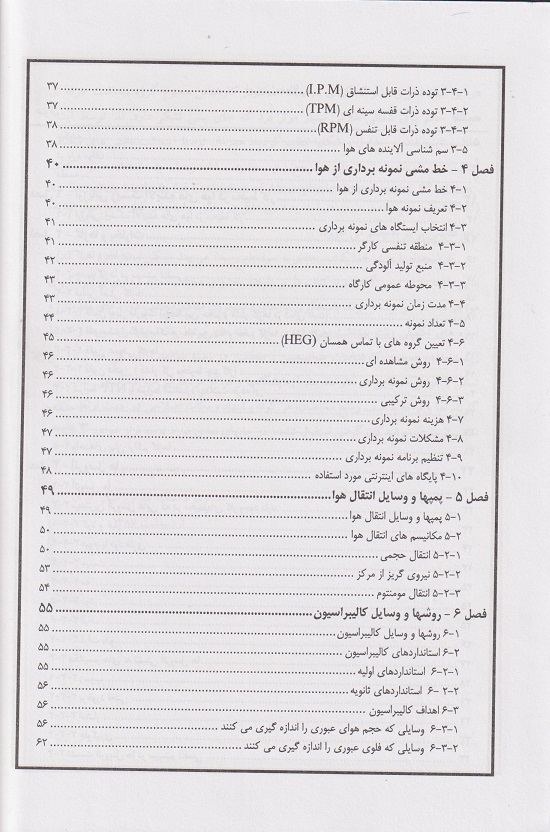 ۳-۴-۱ توده ذرات قابل استنشاق (I.P.M) ........ ۳۷
۳-۴-۲ توده ذرات قفسه سینه ای (TPM) ........ ۳۷
۳-۴-۳ توده ذرات قابل تنفس (RPM) ........ ۳۸
۳-۵ سم شناسی آلاینده های هوا ........ ۳۸
فصل ۴ - خط مشی نمونه برداری از هوا ........ ۴۰
۴-۱ خط مشی نمونه برداری از هوا ........ ۴۰
۴-۲ تعریف نمونه هوا ........ ۴۰
۴-۳ انتخاب ایستگاه های نمونه برداری ........ ۴۱
۴-۳-۱ منطقه تنفسی کارگر ........ ۴۱
۴-۳-۲ منبع تولید آلودگی ........ ۴۲
۴-۳-۳ محوطه عمومی کارگاه ........ ۴۳
۴-۴ مدت زمان نمونه برداری ........ ۴۳
۴-۵ تعداد نمونه ........ ۴۴
۴-۶ تعیین گروه های با تماس همسان (HEG) ........ ۴۵
۴-۶-۱ روش مشاهده ای ........ ۴۶
۴-۶-۲ روش نمونه برداری ........ ۴۶
۴-۶-۳ روش ترکیبی ........ ۴۶
۴-۷ هزینه نمونه برداری ........ ۴۶
۴-۸ مشکلات نمونه برداری ........ ۴۷
۴-۹ تنظیم برنامه نمونه برداری ........ ۴۷
۴-۱۰ پایگاه های اینترنتی مورد استفاده ........ ۴۸
فصل ۵ - پمپها و وسایل انتقال هوا ........ ۴۹
۵-۱ پمپها و وسایل انتقال هوا ........ ۴۹
۵-۲ مکانیسم های انتقال هوا ........ ۵۰
۵-۲-۱ انتقال حجمی ........ ۵۰
۵-۲-۲ نیروی گریز از مرکز ........ ۵۳
۵-۲-۳ انتقال مومنتوم ........ ۵۴
فصل ۶ - روشها و وسایل کالیبراسیون ........ ۵۵
۶-۱ روشها و وسایل کالیبراسیون ........ ۵۵
۶-۲ استانداردهای کالیبراسیون ........ ۵۵
۶-۲-۱ استانداردهای اولیه ........ ۵۵
۶-۲-۲ استانداردهای ثانویه ........ ۵۶
۶-۳ اهداف کالیبراسیون ........ ۵۶
۶-۳-۱ وسایلی که حجم هوای عبوری را اندازه گیری می کنند ........ ۵۶
۶-۳-۲ وسایلی که فلوی عبوری را اندازه گیری می کنند ........ ۶۲